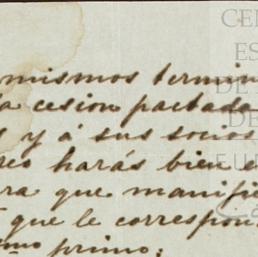 mismos termin
la cesion pactada
s y á sus socios
harás bien e
ra que manifie
que le correspon
primo: